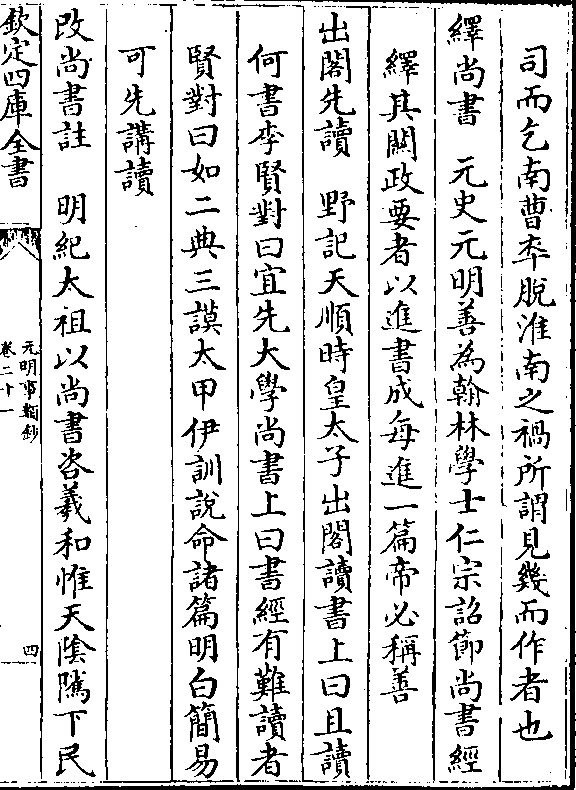 司而乞南曹卒脫淮南之禍所謂見幾而作者也
繹尚書　元史元明善為翰林學士仁宗詔節尚書經
繹其關政要者以進書成每進一篇帝必稱善
出閣先讀　野記天順時皇太子出閣讀書上曰且讀
何書李賢對曰宜先大學尚書上曰書經有難讀者
賢對曰如二典三謨太甲伊訓說命諸篇明白簡易
可先講讀
改尚書註　明紀太祖以尚書咨羲和惟天陰隲下民
欽定四庫全書
元明事類鈔
卷二十一
四